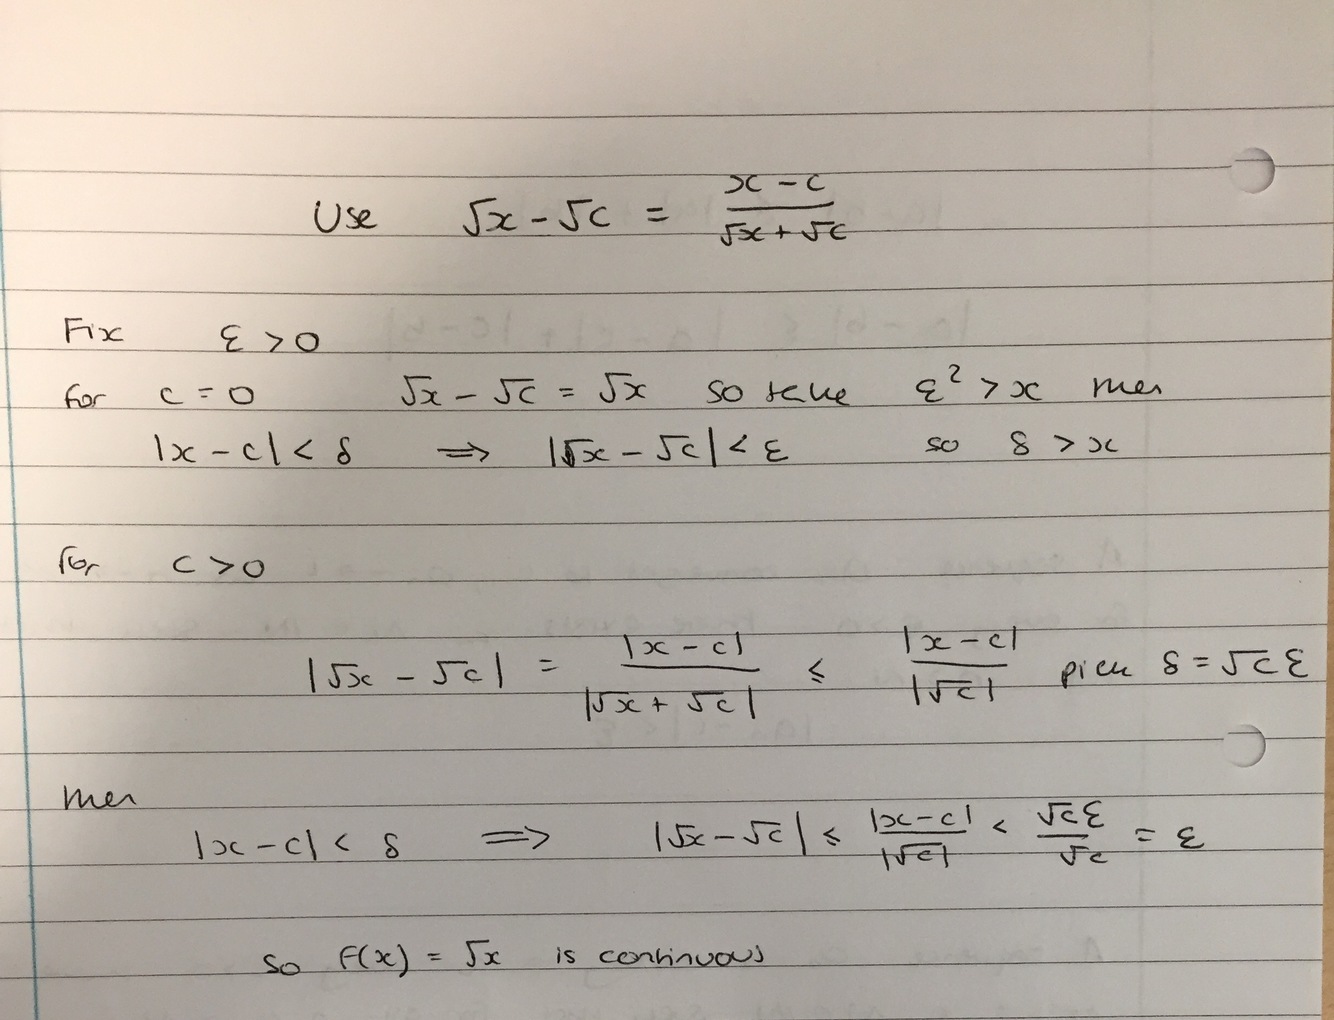 Use √x - √c = (x - c)/(√x + √c)
Fix ε > 0
for c = 0 √x - √c = √x so take ε² > x then
|x - c| < δ ⟹ |√x - √c| < ε so δ > x
for c > 0
|√x - √c| = |x - c|/|√x + √c| ≤ |x - c|/|√c| pick δ = √c ε
then
|x - c| < δ ⟹ |√x - √c| ≤ |x - c|/|√c| < √c ε/√c = ε
so f(x) = √x is continuous